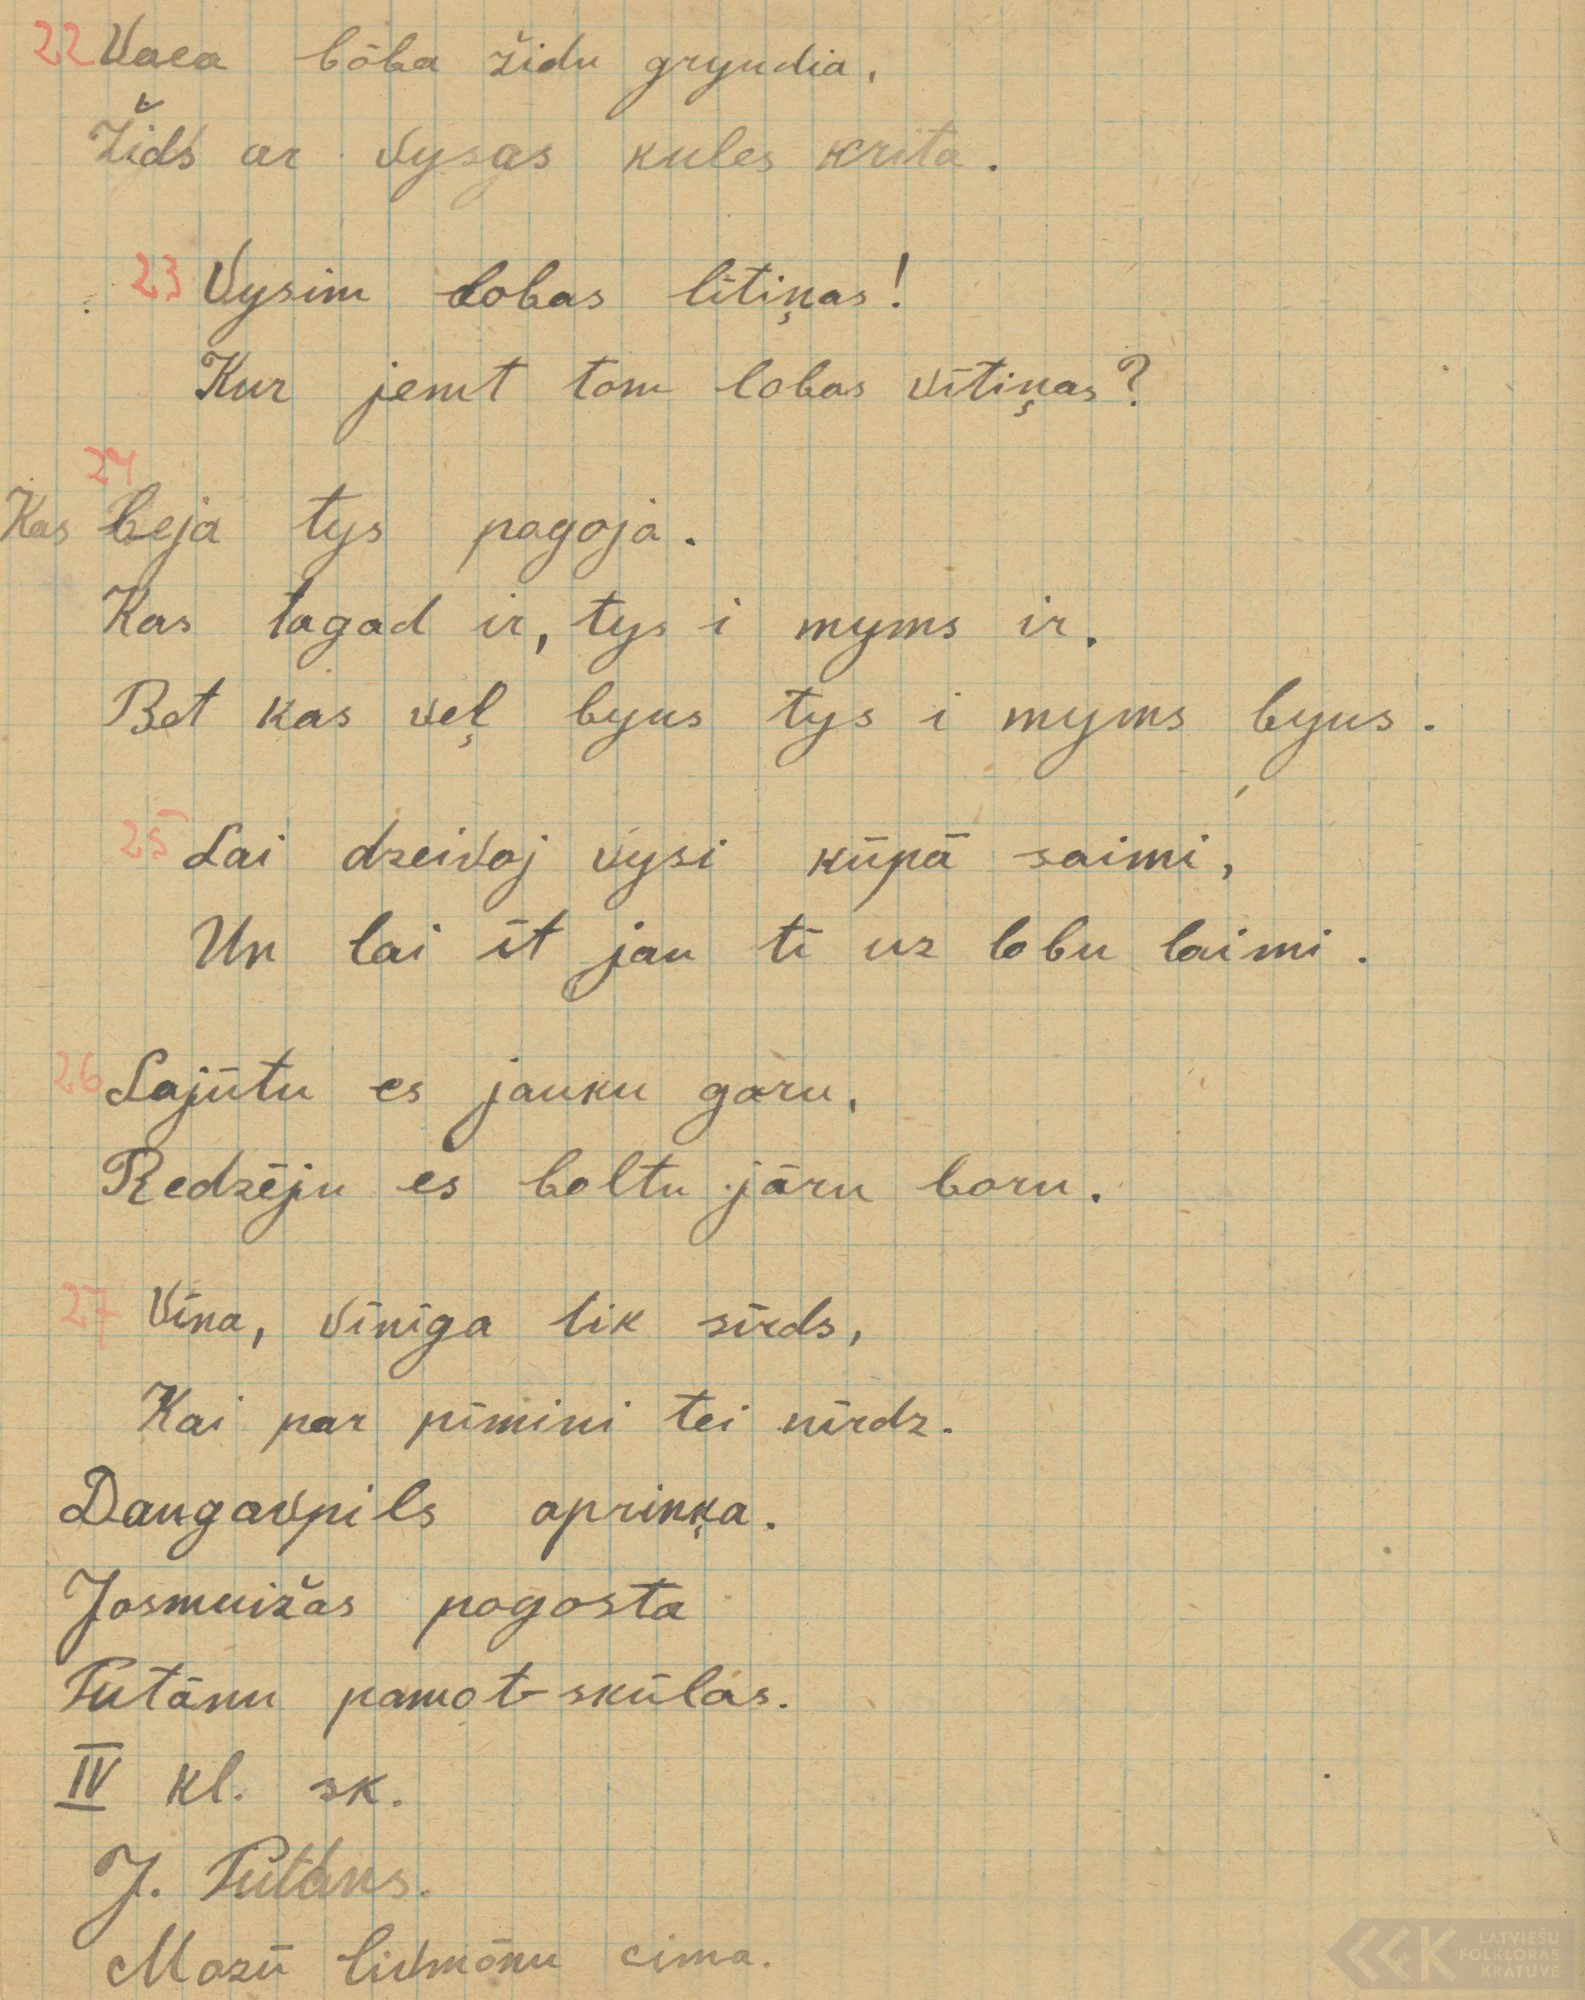 22 Vaca bōba židu gryudia,
Žids ar vysas kules krita.
23 Vysim lobas lītiņas!
Kur jemt tom lobas vītiņas?
24
Kas beja tys pagoja.
Kas tagad ir, tys i myms ir.
Bet kas veļ byus tys i myms byus.
25 Lai dzeivoj vysi kūpā saimi,
Un lai īt jau tī uz lobu laimi.
26 Lajūtu es jauku garu,
Redzēju es boltu jāru boru.
27 Vīna, vīnīga lik sirds,
Kai par pīmini tei mirdz.
Daugavpils apriņķa.
Josmuižas pogosta
Tutānu pamot-skūlas.
IV kl. sk.
J. Tutāns.
Mozū livmōnu cima.
LATVIEŠU
FOLKLORAS
KRĀTUVE